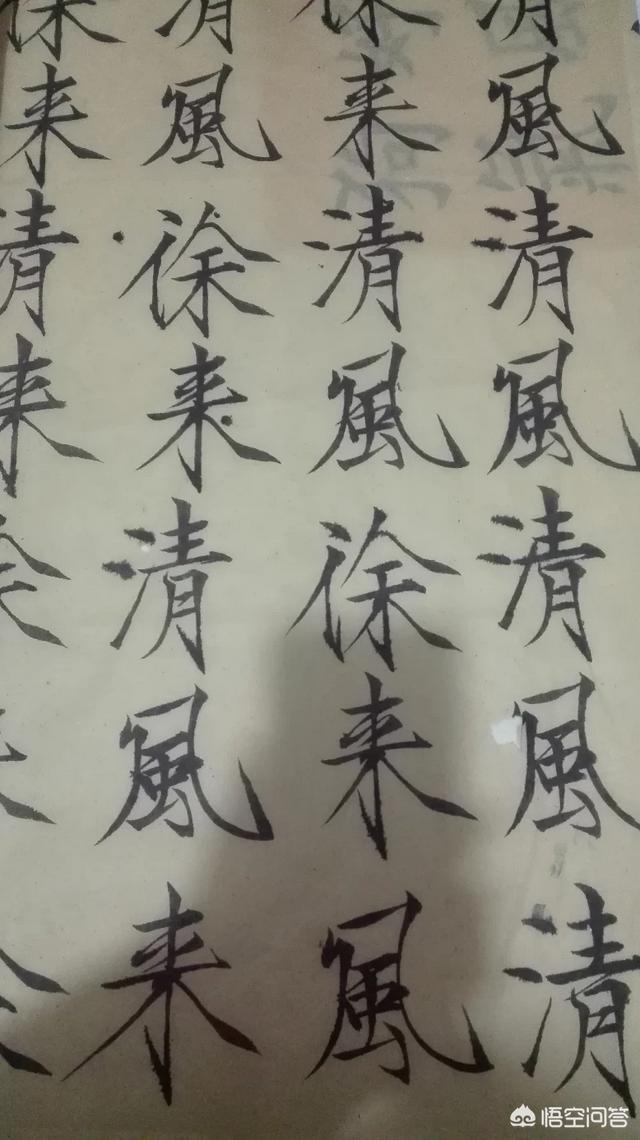 清風清風清風清
徐来清風徐来風
清風徐来清風来
徐来清来
悟空问答